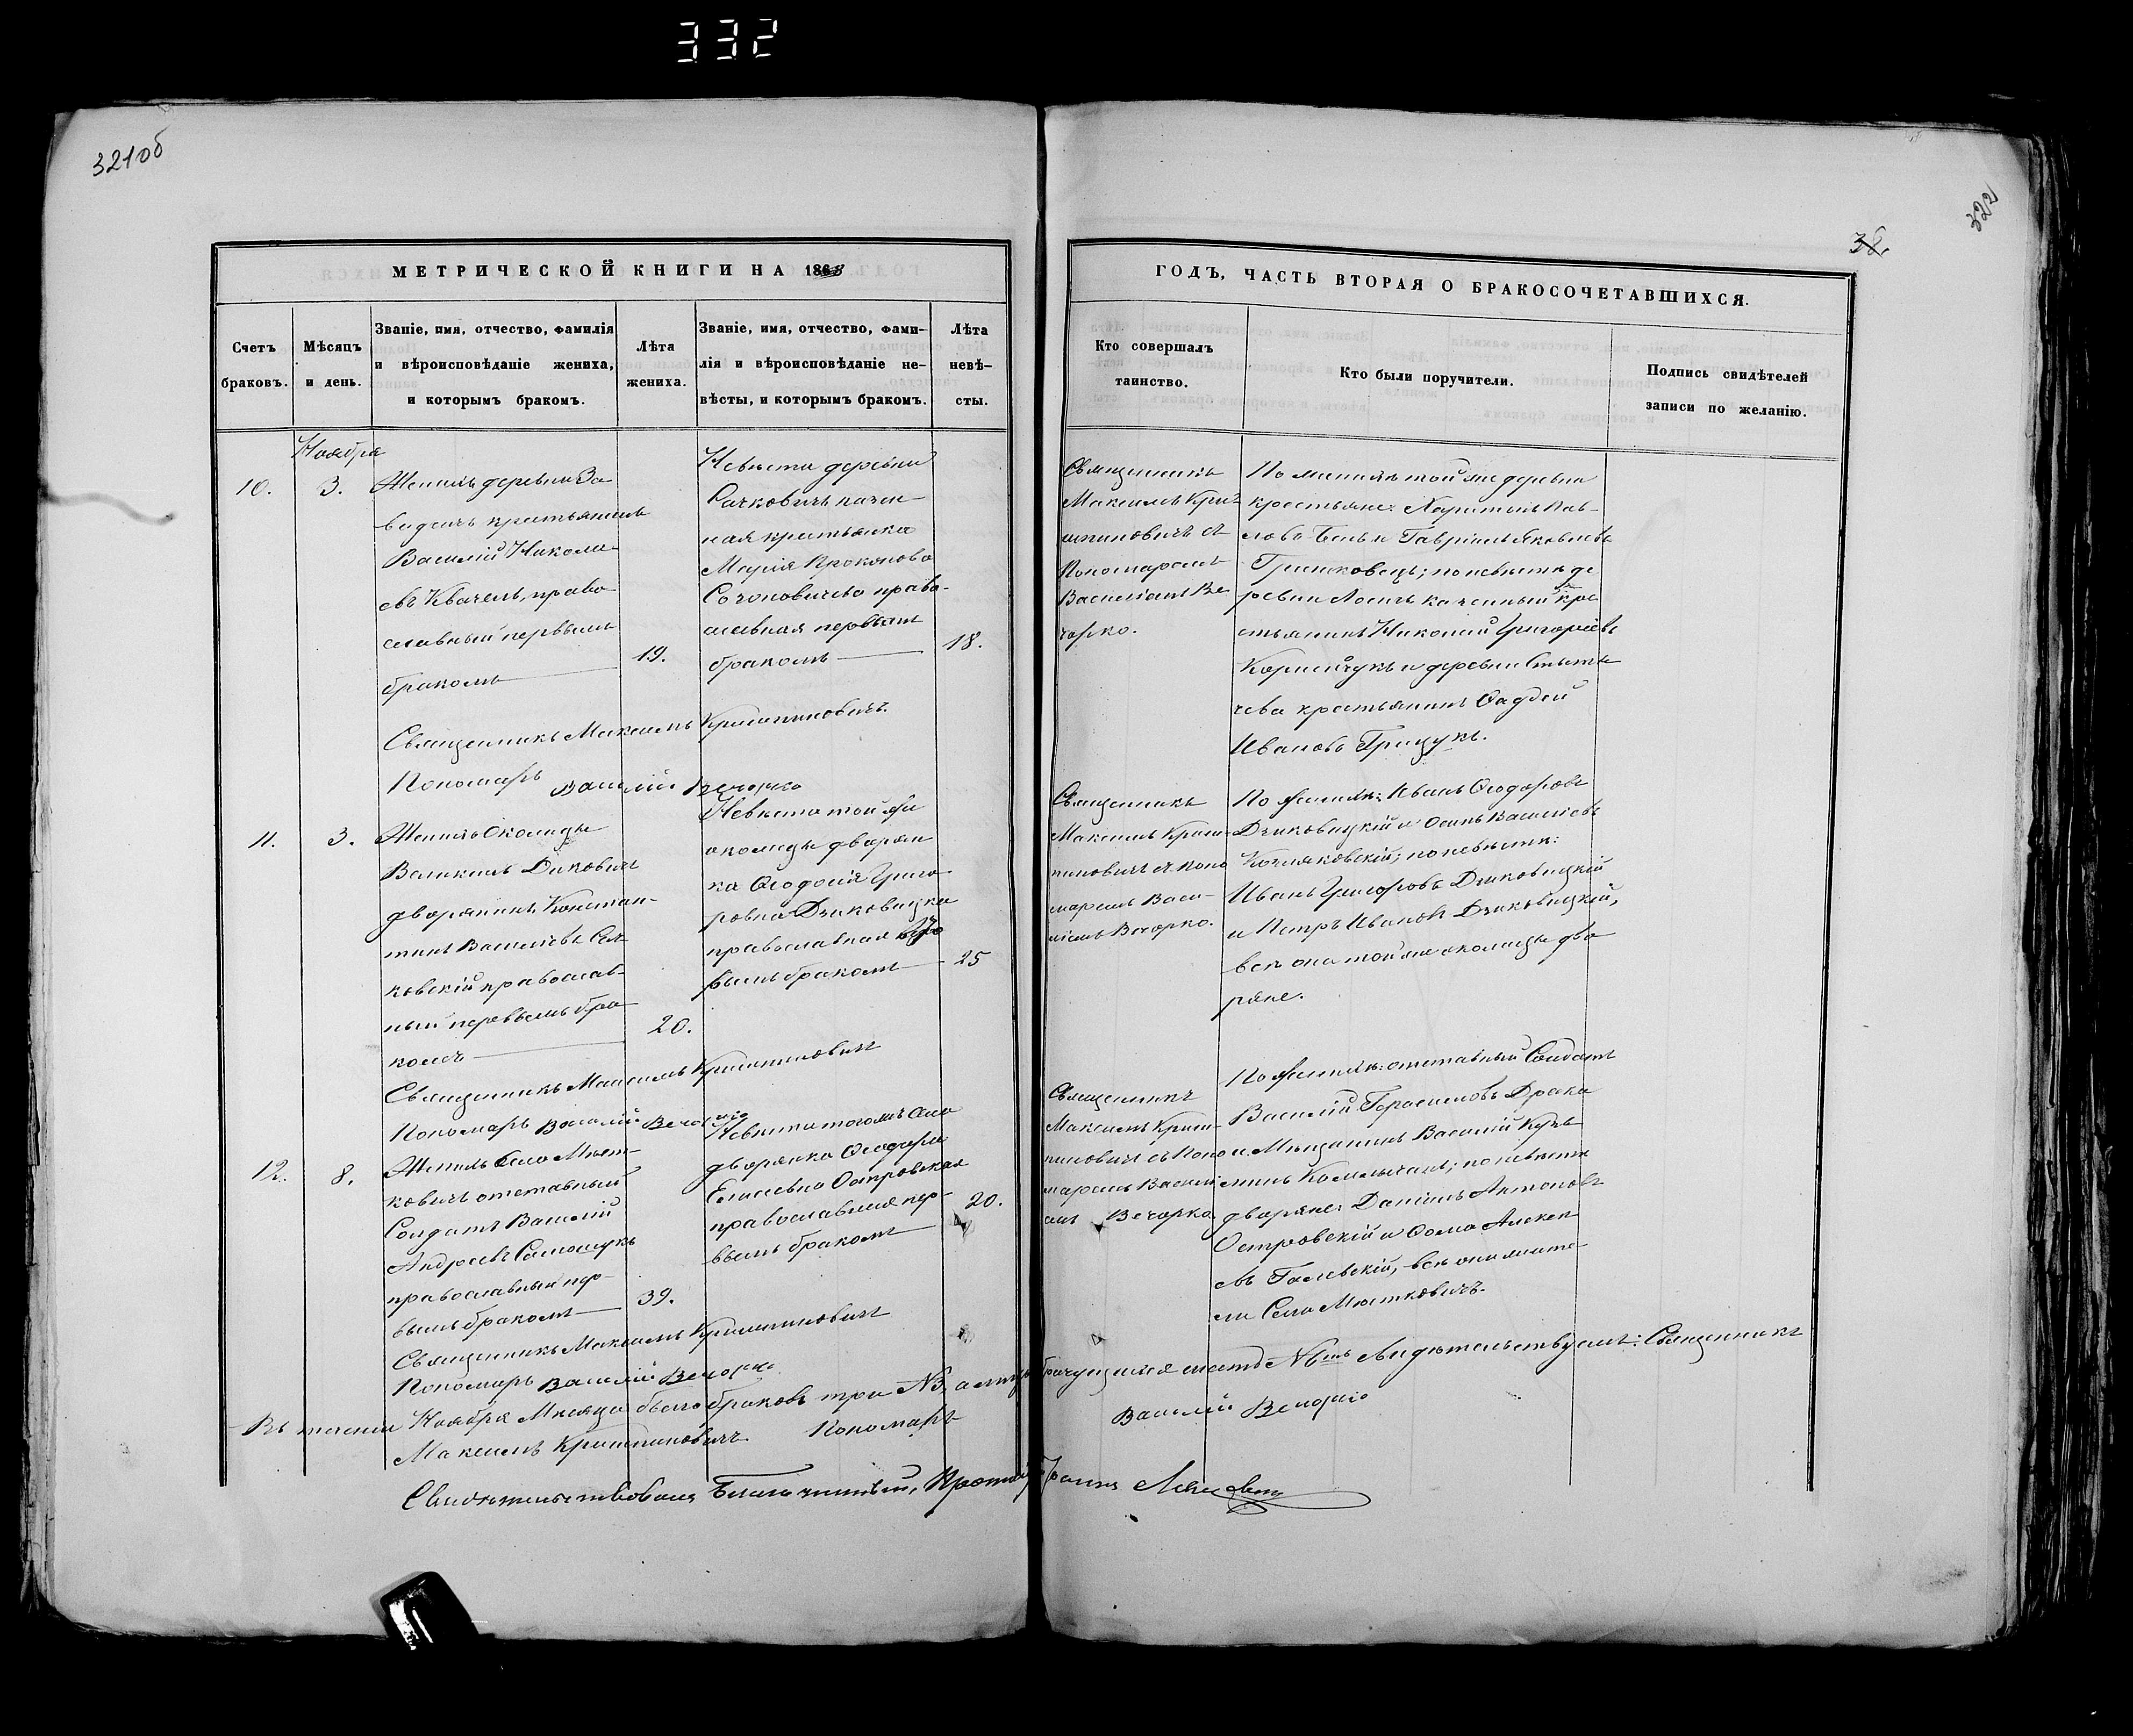 332
321об
322
38.
МЕТРИЧЕСКОЙ КНИГИ НА 1863
ГОДЪ, ЧАСТЬ ВТОРАЯ О БРАКОСОЧЕТАВШИХСЯ.
Счетъ браковъ.
Мѣсяцъ и день.
Званіе, имя, отчество, фамилія
и вѣроисповѣданіе жениха,
и которымъ бракомъ.
Лѣта
жениха.
Званіе, имя, отчество, фами-
лія и вѣроисповѣданіе не-
вѣсты, и которымъ бракомъ.
Лѣта
невѣ-
сты.
Кто совершалъ
таинство.
Кто были поручители.
Подпись свидѣтелей
записи по желанію.
Ноября
10.
3.
Женихъ деревни За-
видчичъ крестьянинъ
Василій Никола-
евъ Квачель, право-
славный первымъ
бракомъ
19.
Невѣста деревни
Сачковичъ казен-
ная крестьянка
Марія Прокопова
православная первымъ
бракомъ
18.
Священникъ
Максимъ Криш-
пиновичъ съ
Пономаремъ
Василіемъ Ве-
чорко.
По женихѣ той же деревни
крестьяне: Харитонъ Пав-
ловъ Бень и Гавріилъ Яковлевъ
Гришковецъ; по невѣстѣ де-
ревни Лосичъ казенный кре-
стьянинъ Николай Григоріевъ
Корнейчукъ и деревни Стыты-
чева крестьянинъ Фаддей
Ивановъ Грицукъ.
Священникъ Максимъ Кришпиновичъ.
Пономарь Василій Вечорко
11.
3.
Женихъ Околицы
Великихъ Диковичъ
дворянинъ Констан-
тинъ Василіевъ
ковскій православ-
ный первымъ бра-
комъ
20.
Невѣста той же
околицы дворян-
ка Феодосія Григо-
ровна Дзиковицка
православная пер-
вымъ бракомъ
25
Священникъ
Максимъ Криш-
пиновичъ съ Поно-
маремъ Васи-
ліемъ Вечорко.
По женихѣ: Иванъ Феодоровъ
Дзиковицкій и Осипъ Василіевъ
Качановскій; по невѣстѣ:
Иванъ Григоровъ Дзиковицкій
и Петръ Ивановъ Дзиковицкій,
всѣ они той же околицы дво-
ряне.
Священникъ Максимъ Кришпиновичъ
Пономарь Василій Вечорко
12.
8.
Женихъ Села Мѣст-
ковичъ отставный
Солдатъ Василій
Андреевъ Самошукъ
православный пер-
вымъ бракомъ
39.
Невѣста того жъ Села
дворянка Феодора
Елисеевна Островская
православная пер-
вымъ бракомъ
20.
Священникъ
Максимъ Криш-
пиновичъ съ Поно-
маремъ Василі-
емъ Вечорко.
По женихѣ: отставный Солдатъ
Василій Герасимовъ Драка
и Мѣщанинъ Василій Кузь-
минъ; по невѣстѣ
дворяне: Даніилъ Антоновъ
Островскій и Фома Алексѣ-
евъ Галевскій, всѣ они жите-
ли Села Мѣстковичъ.
Священникъ Максимъ Кришпиновичъ
Пономарь Василій Вечорко
Въ теченіи Ноября Мѣсяца было браковъ три № 3, а
брачущихся шесть № 6ть Свидѣтельствуемъ: Священникъ
Максимъ Кришпиновичъ. Пономарь Василій Вечорко
Свидѣтельствовалъ Благочинный, Протоіерей Іоаннъ